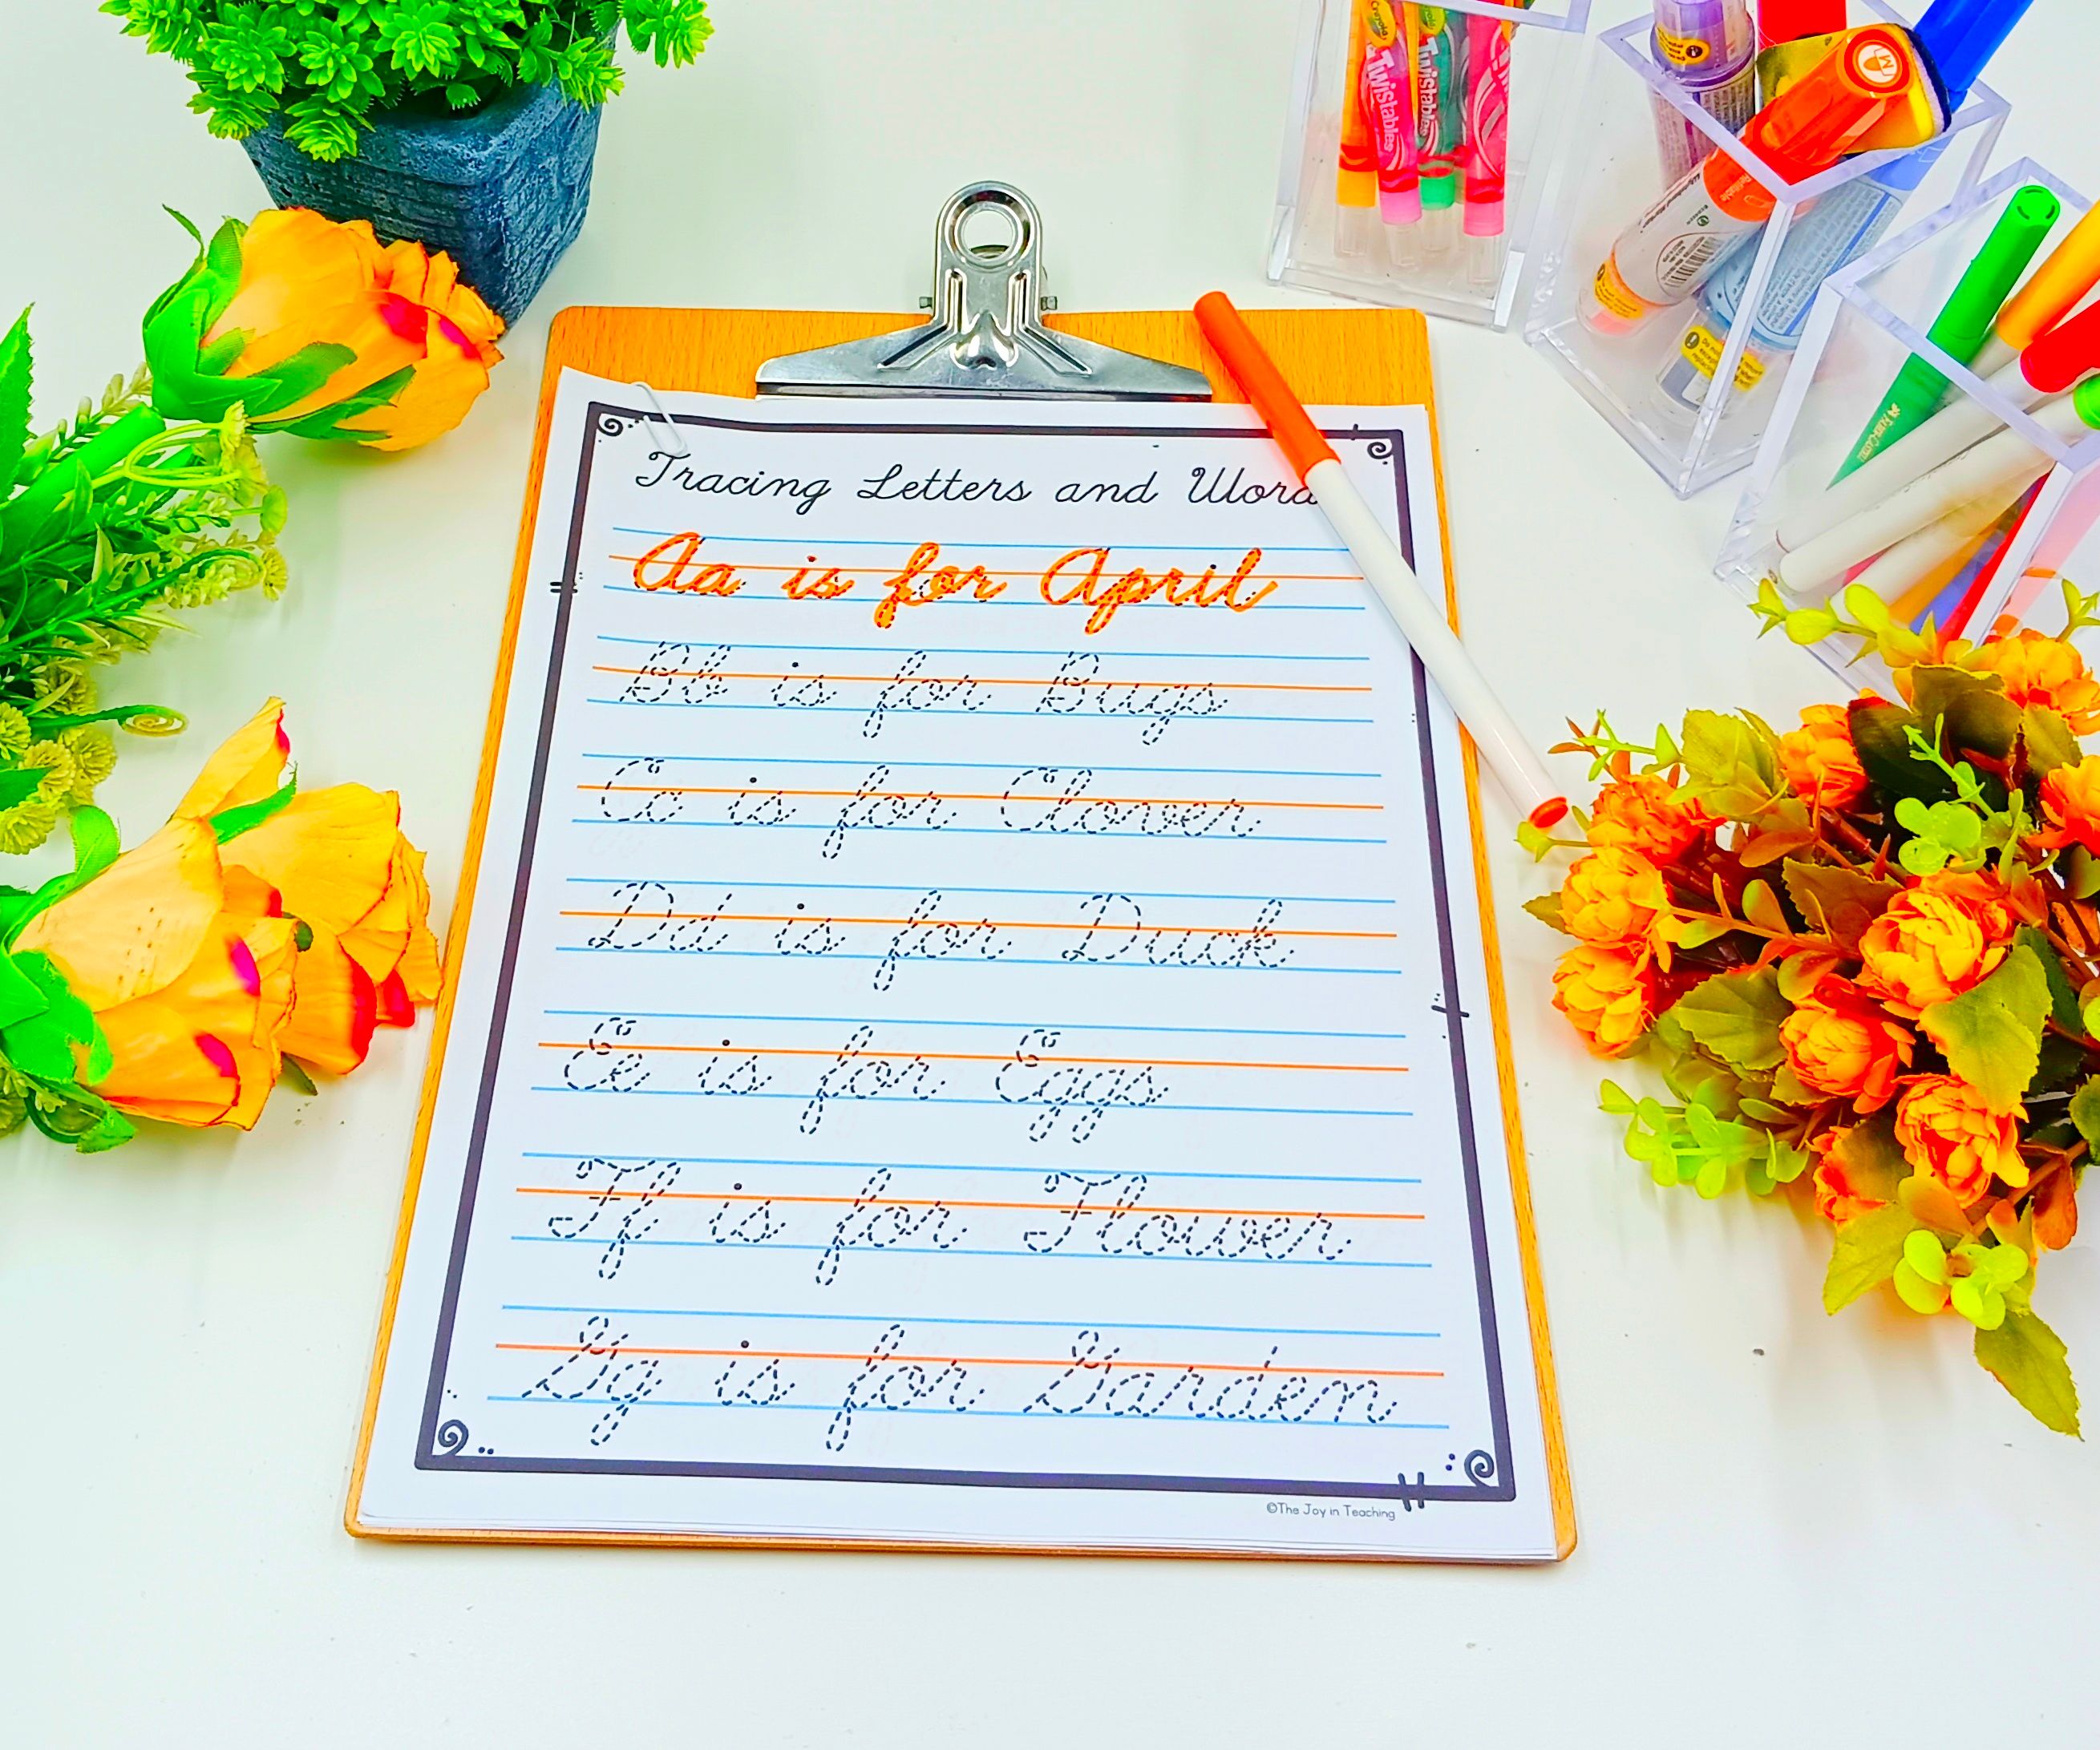 Crayola Twistables Twistables
Tracing Letters and Word
Aa is for April
Bb is for Bugs
Cc is for Clover
Dd is for Duck
Ee is for Eggs
Ff is for Flower
Gg is for Garden
©The Joy in Teaching